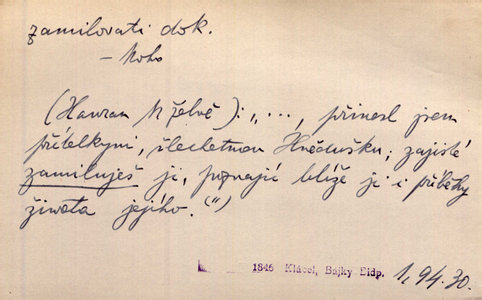 zamilovati dok.
– koho
(Hawran k želvě): „ ..., přinesl jsem
přítelkyni, šlechetnou Hnědušku; zajisté
zamiluješ ji, poznajíc blíže ji i příběhy
žiwota jejího. (")
1846 Klácel, Bajky Bidp. 1, 94. 30.